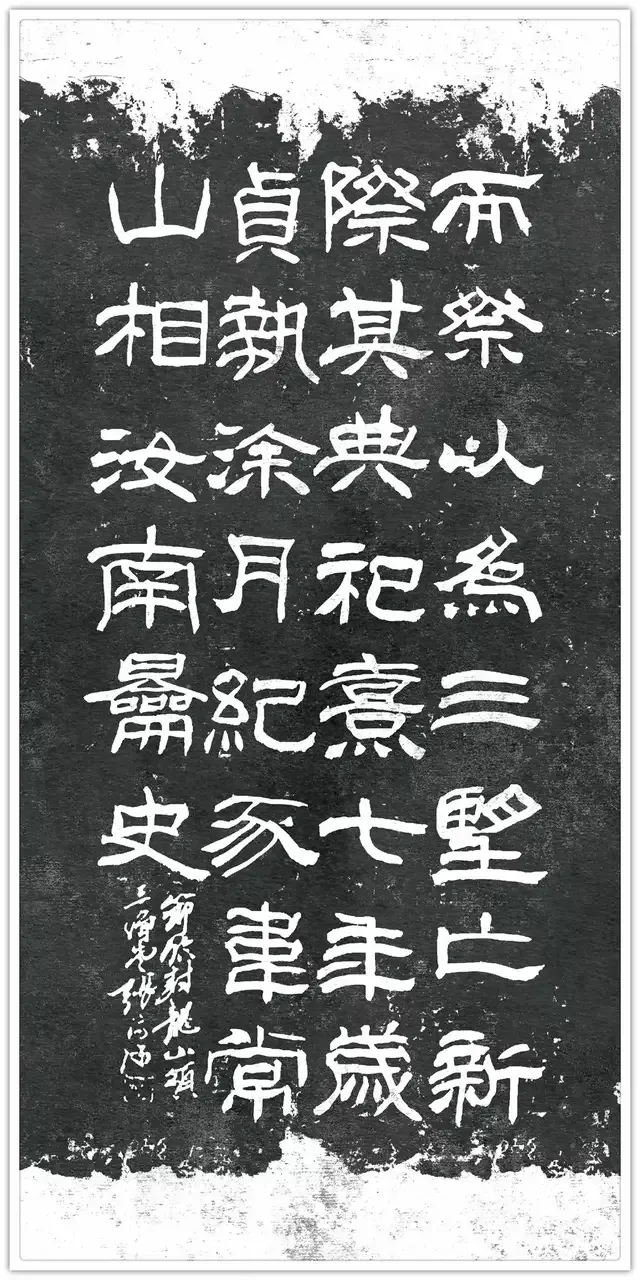 而祭以為三朢亡新
際其典祀熹七年歲
貞執涂月紀豕韋常
山相汝南史
節臨封龍山頌
張